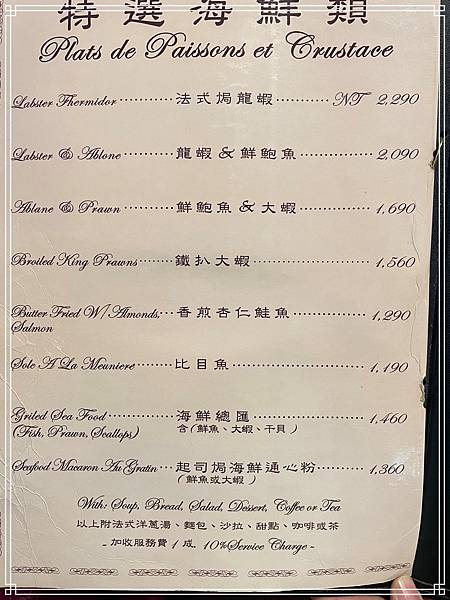 特選海鮮類
Plats de Paissons et Crustace
Labster Thermidor ············ 法式焗龍蝦 ············ NT 2,290
Labster & Ablone ············ 龍蝦&鮮鮑魚 ············ 2,090
Ablane & Prawn ············ 鮮鮑魚&大蝦 ············ 1,690
Broiled King Prawns ········ 鐵扒大蝦 ············ 1,560
Butter Fried W/ Almonds, ··· 香煎杏仁鮭魚 ············ 1,290
Salmon
Sole A La Meuniere ········ 比目魚 ············ 1,190
Griled Sea Food ············ 海鮮總匯 ············ 1,460
(Fish, Prawn, Scallops) 含(鮮魚、大蝦、干貝)
Seafood Macaron Au Gratin ···· 起司焗海鮮通心粉 ········ 1,360
(鮮魚或大蝦)
With: Soup, Bread, Salad, Dessert, Coffee or Tea
以上附法式洋蔥湯、麵包、沙拉、甜點、咖啡或茶
- 加收服務費 1 成 10%Service Charge -